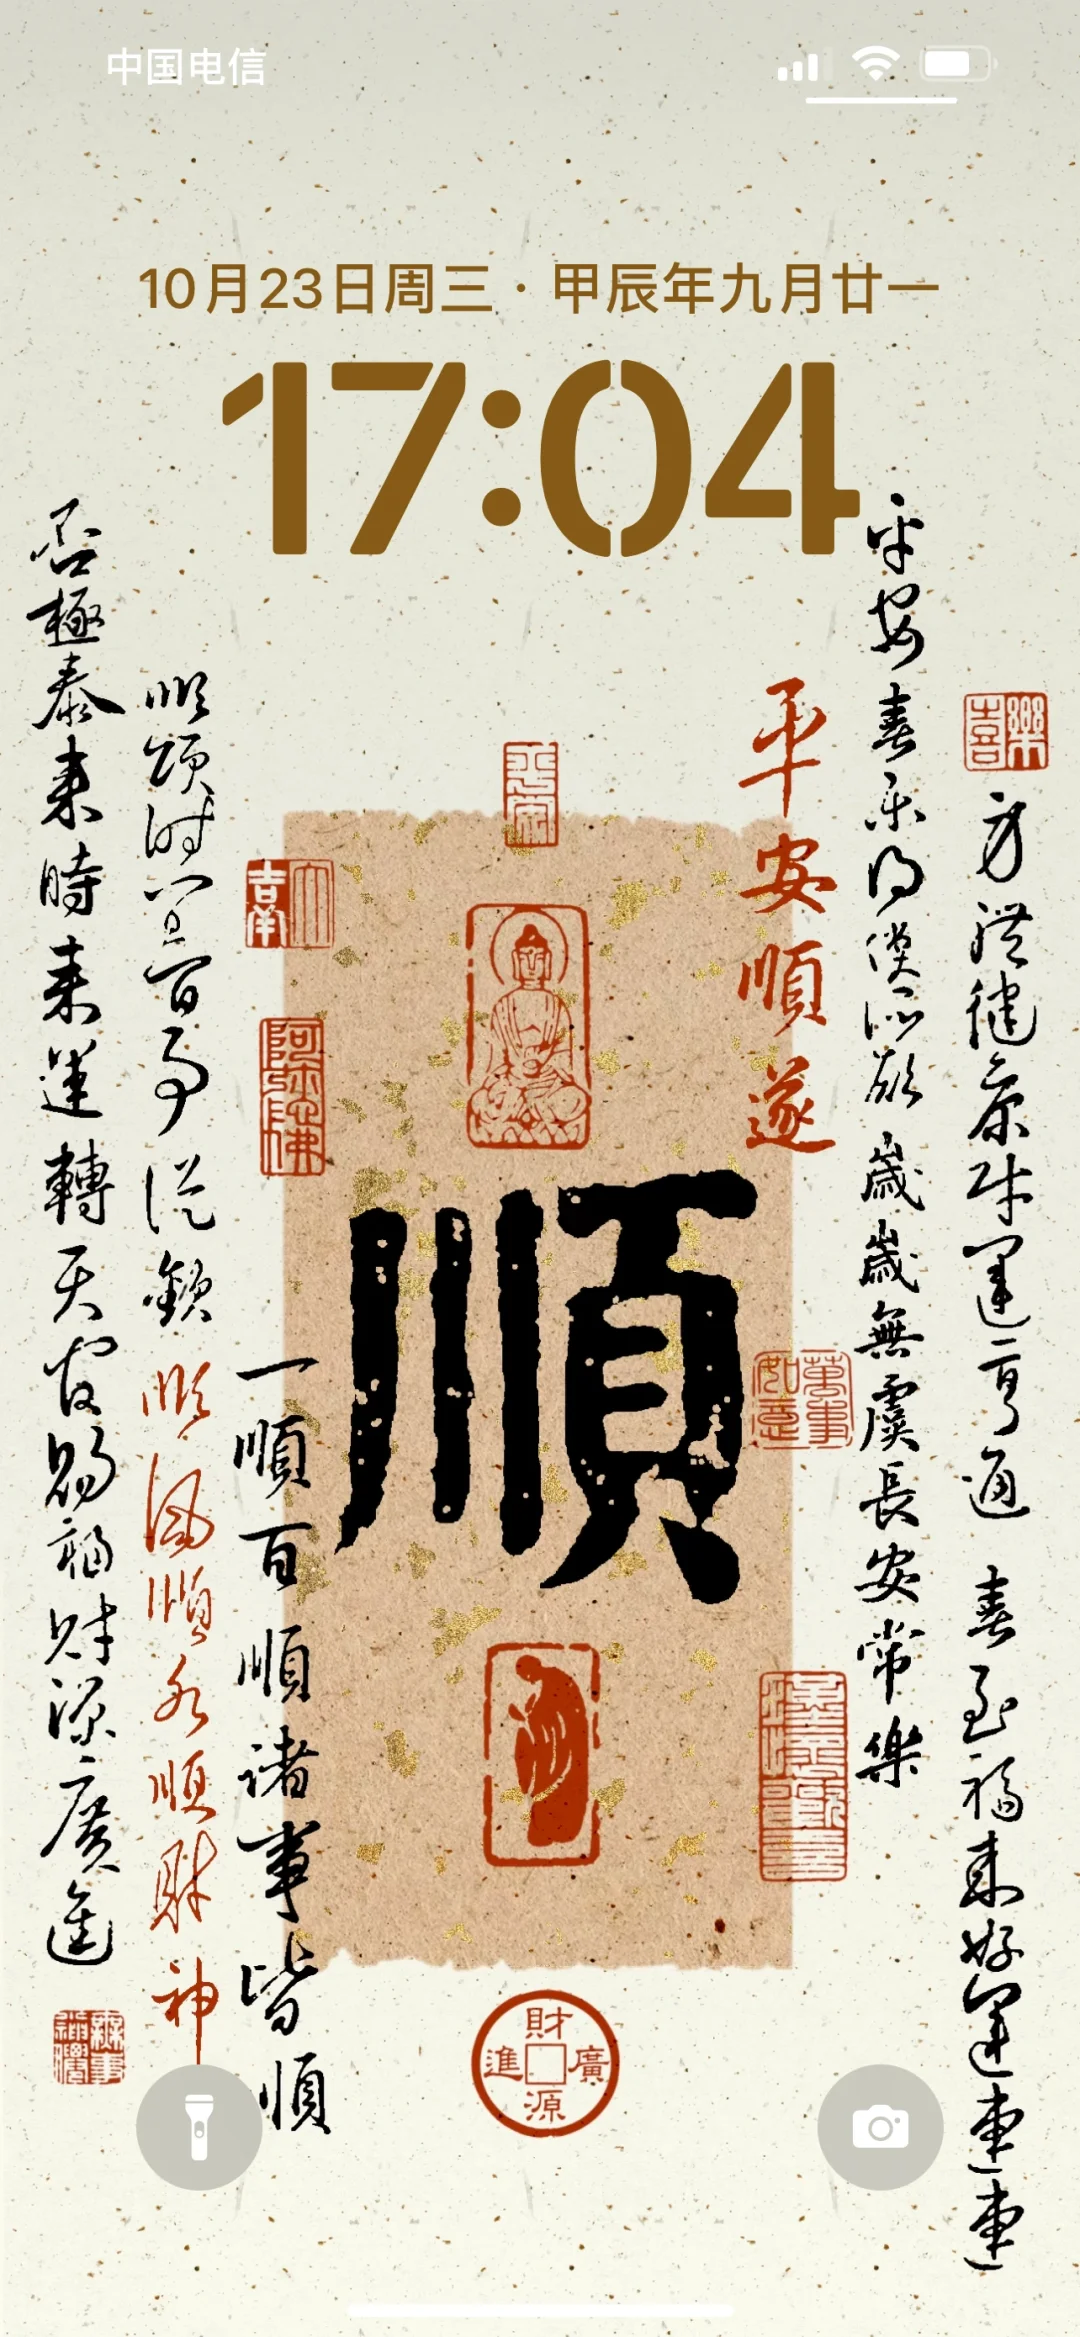 中国电信
10月23日周三 · 甲辰年九月廿一
17:04
樂喜
健康 財運亨通 喜至福來好運連連
平安喜樂得償所願 歲歲無虞長安常樂
平安順遂
平安
順
萬事如意
大吉
阿彌陀佛
一順百順諸事皆順
順頌時宜百事從歡
順風順水順財神
否極泰來時來運轉天官賜福財源廣進
財源廣進